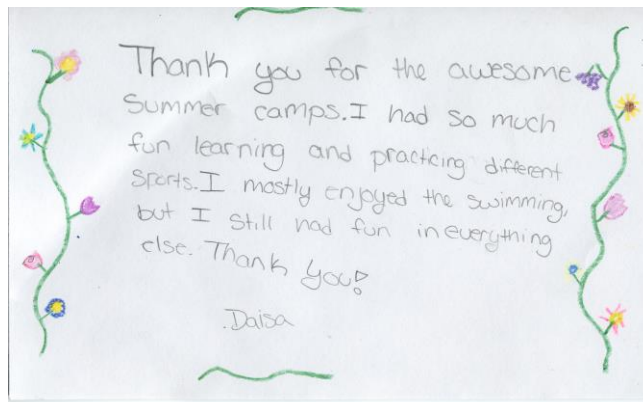 Thank you for the awesome
Summer camps. I had so much
fun learning and practicing different
Sports. I mostly enjoyed the swimming,
but I still had fun in everything
else. Thank you!
.Daisa